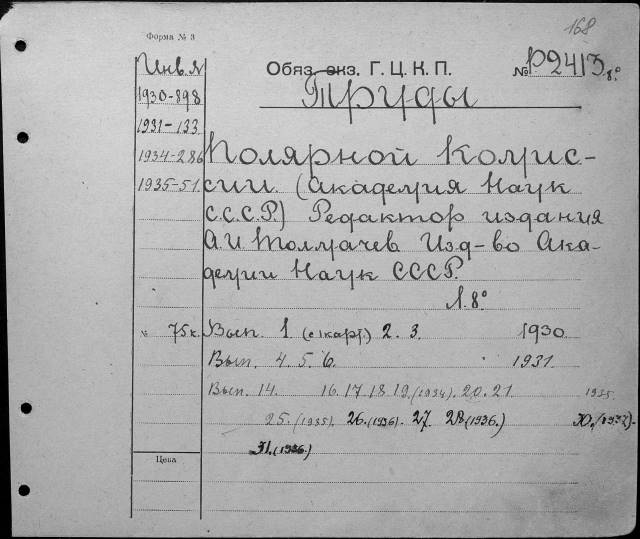 168
Форма № 3
Инв. №
Обяз. экз. Г. Ц. К. П.
№ Р2413 8.°
1930-898
Труды
1931-133
1934-286
Полярной Комис-
1935-51.
сии. (Академия Наук
С.С.С.Р.) Редактор издания
А. И. Толмачев Изд-во Ака-
демии Наук СССР.
Л. 8°
№ 75 к.
Вып. 1 (с карт) 2. 3. 1930
Вып. 4. 5. 6. 1931.
Вып. 14. 16. 17. 18. 19. (1934). 20. 21. 1935.
25. (1935). 26. (1936). 27. 28 (1936.) 30. (1937).
31. (1936.)
Цена